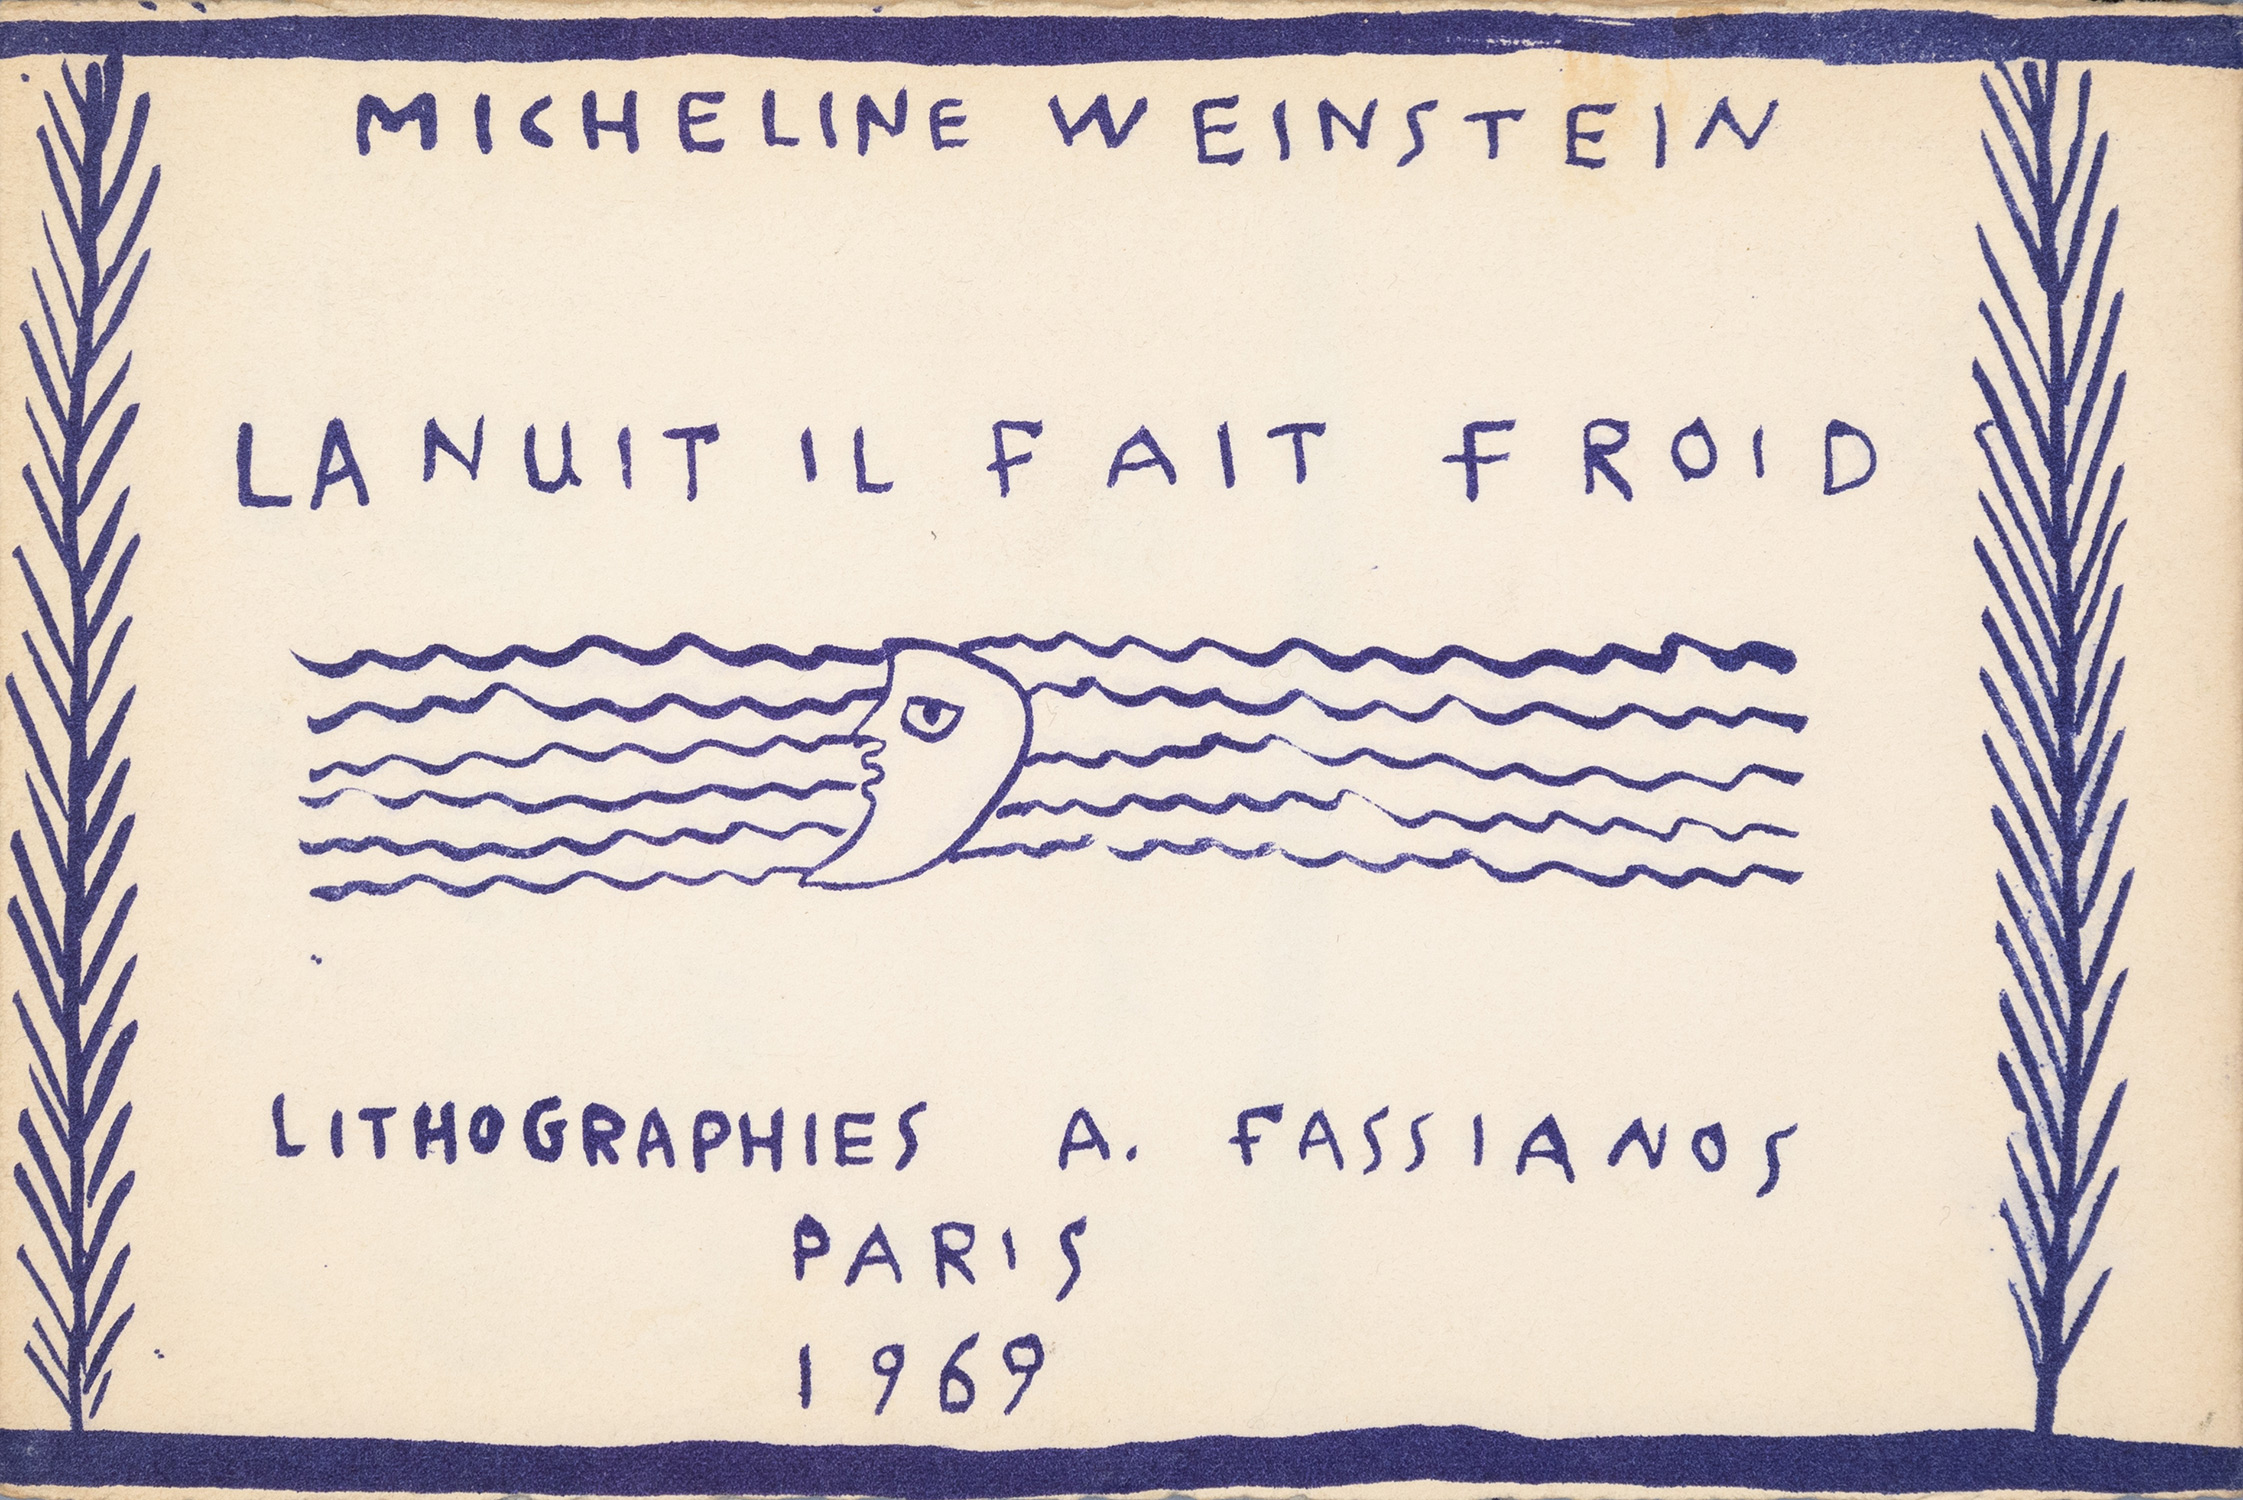 MICHELINE WEINSTEIN
LA NUIT IL FAIT FROID
LITHOGRAPHIES A. FASSIANOS
PARIS
1969